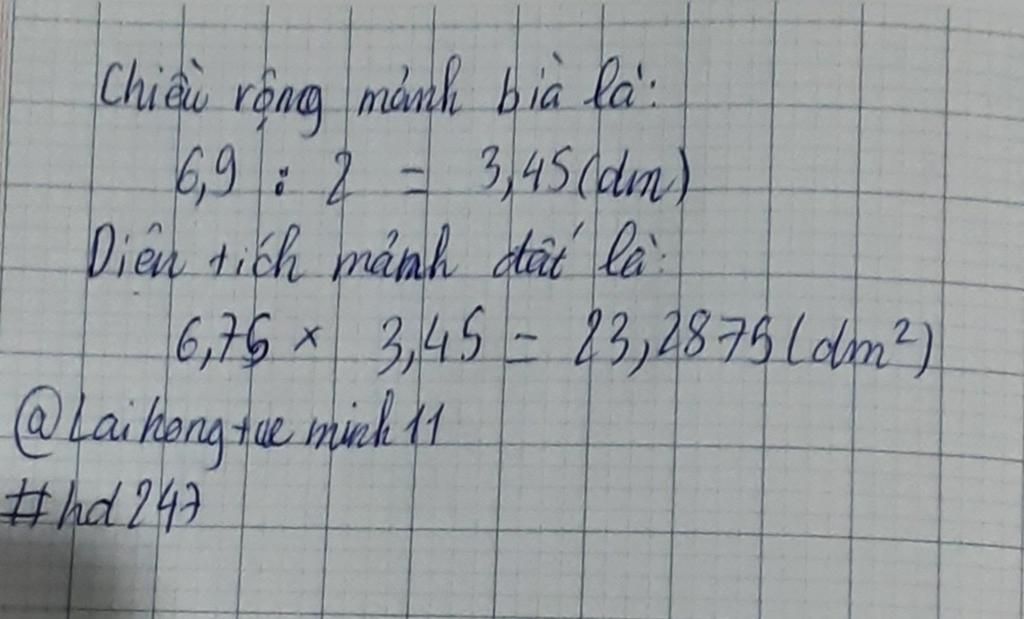 Chiều rộng mảnh bìa là:
6,9 : 2 = 3,45(dm)
Diện tích mảnh đất là:
6,75 × 3,45 = 23,2875(dm²)
@Laihongtueminh11
#hd247